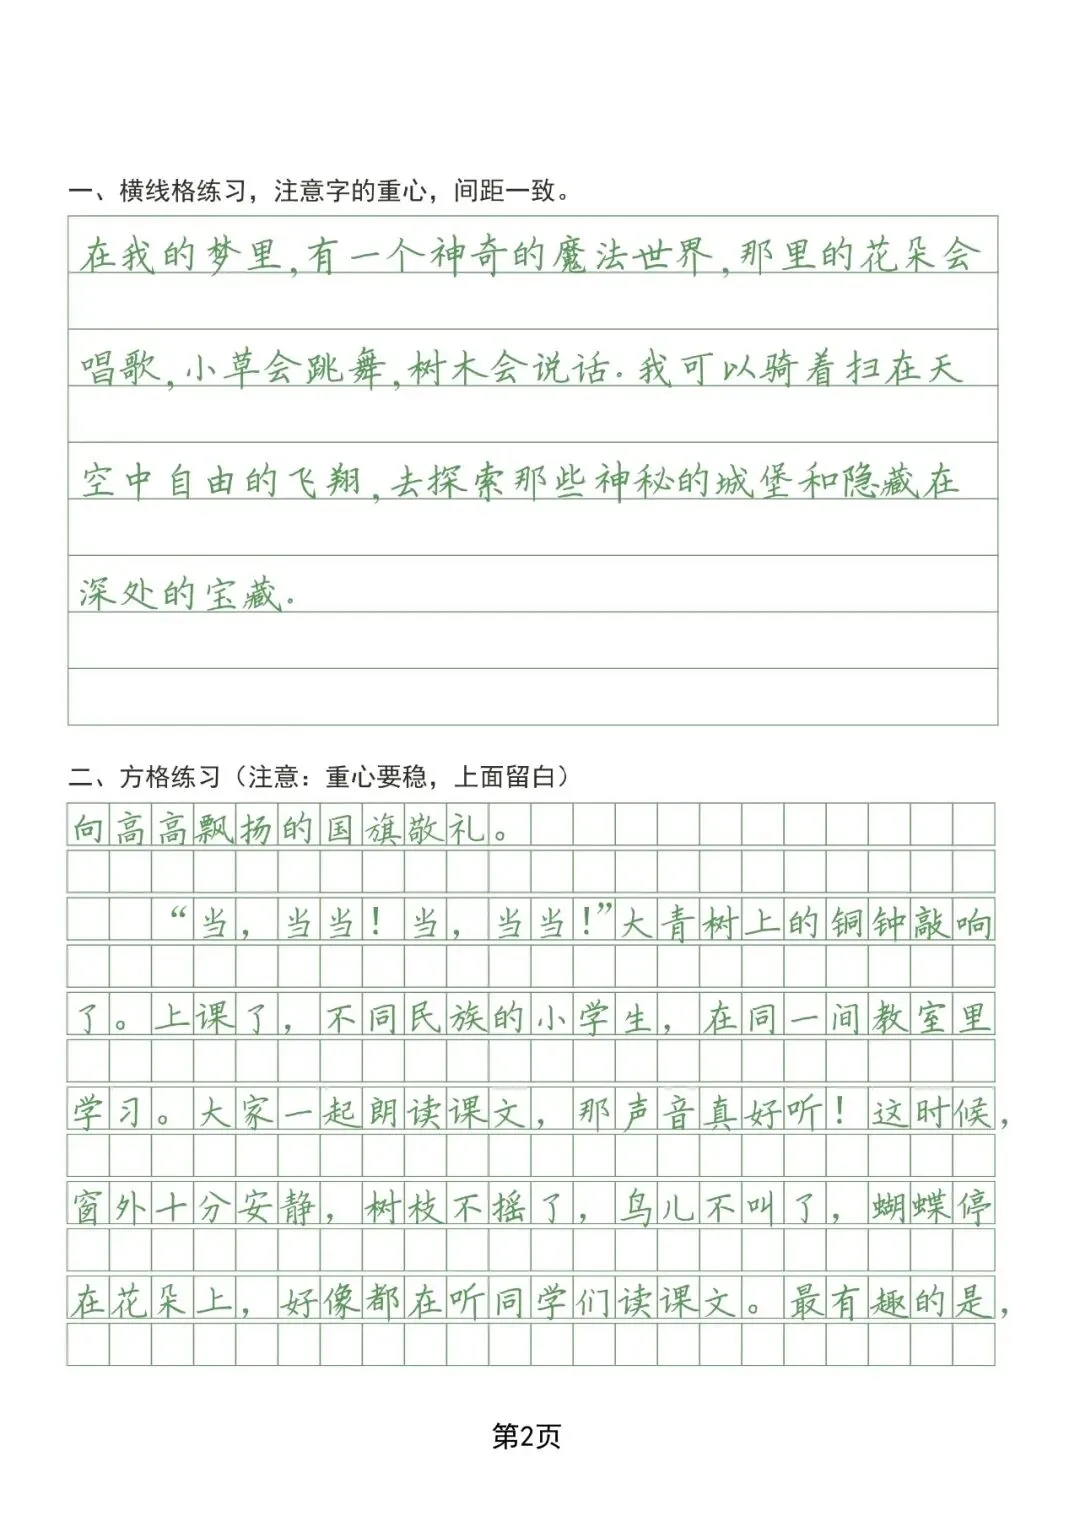 一、横线格练习，注意字的重心，间距一致。
在我的梦里,有一个神奇的魔法世界,那里的花朵会
唱歌,小草会跳舞,树木会说话.我可以骑着扫在天
空中自由的飞翔,去探索那些神秘的城堡和隐藏在
深处的宝藏.
二、方格练习（注意：重心要稳，上面留白）
向高高飘扬的国旗敬礼。
“当，当当！当，当当！”大青树上的铜钟敲响
了。上课了，不同民族的小学生，在同一间教室里
学习。大家一起朗读课文，那声音真好听！这时候，
窗外十分安静，树枝不摇了，鸟儿不叫了，蝴蝶停
在花朵上，好像都在听同学们读课文。最有趣的是，
第2页